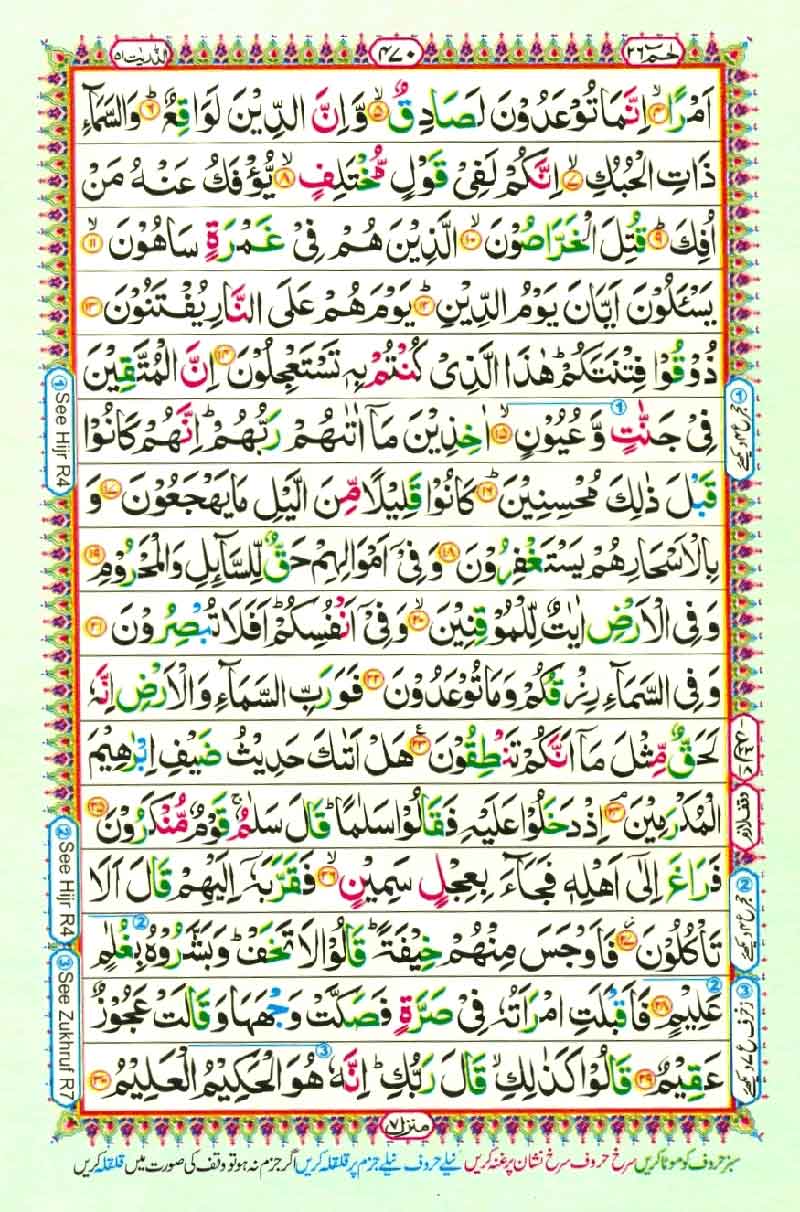 حٰمٓ ٢٦
٤٧٠
الذّٰریٰت ٥١
اَمْرًاۙ‏﴿۴﴾ اِنَّمَا تُوْعَدُوْنَ لَصَادِقٌۙ‏﴿۵﴾ وَّاِنَّ الدِّيْنَ لَوَاقِعٌؕ‏﴿۶﴾ وَالسَّمَآءِ
ذَاتِ الْحُبُكِۙ‏﴿۷﴾ اِنَّكُمْ لَفِىْ قَوْلٍ مُّخْتَلِفٍۙ‏﴿۸﴾ يُّؤْفَكُ عَنْهُ مَنْ
اُفِكَؕ‏﴿۹﴾ قُتِلَ الْخَرَّاصُوْنَۙ‏﴿۱۰﴾ الَّذِيْنَ هُمْ فِىْ غَمْرَةٍ سَاهُوْنَۙ‏﴿۱۱﴾
يَسْـَٔلُوْنَ اَيَّانَ يَوْمُ الدِّيْنِؕ‏﴿۱۲﴾ يَوْمَ هُمْ عَلَى النَّارِ يُفْتَنُوْنَ‏﴿۱۳﴾
ذُوْقُوْا فِتْنَتَكُمْؕ هٰذَا الَّذِىْ كُنْتُمْ بِهٖ تَسْتَعْجِلُوْنَ‏﴿۱۴﴾ اِنَّ الْمُتَّقِيْنَ
فِىْ جَنّٰتٍ وَّعُيُوْنٍۙ‏﴿۱۵﴾ اٰخِذِيْنَ مَاۤ اٰتٰٮهُمْ رَبُّهُمْؕ اِنَّهُمْ كَانُوْا
قَبْلَ ذٰلِكَ مُحْسِنِيْنَؕ‏﴿۱۶﴾ كَانُوْا قَلِيْلًا مِّنَ الَّيْلِ مَا يَهْجَعُوْنَ‏﴿۱۷﴾ وَ
بِالْاَسْحَارِ هُمْ يَسْتَغْفِرُوْنَ‏﴿۱۸﴾ وَفِىْۤ اَمْوَالِهِمْ حَقٌّ لِّلسَّآٮِٕلِ وَالْمَحْرُوْمِ‏﴿۱۹﴾
وَفِى الْاَرْضِ اٰيٰتٌ لِّلْمُوْقِنِيْنَۙ‏﴿۲۰﴾ وَفِىْۤ اَنْفُسِكُمْؕ اَفَلَا تُبْصِرُوْنَ‏﴿۲۱﴾
وَفِى السَّمَآءِ رِزْقُكُمْ وَمَا تُوْعَدُوْنَ‏﴿۲۲﴾ فَوَرَبِّ السَّمَآءِ وَالْاَرْضِ اِنَّهٗ
لَحَقٌّ مِّثْلَ مَاۤ اَنَّكُمْ تَنْطِقُوْنَ‏﴿۲۳﴾ هَلْ اَتٰٮكَ حَدِيْثُ ضَيْفِ اِبْرٰهِيْمَ
الْمُكْرَمِيْنَۘ‏﴿۲۴﴾ اِذْ دَخَلُوْا عَلَيْهِ فَقَالُوْا سَلٰمًاؕ قَالَ سَلٰمٌۚ قَوْمٌ مُّنْكَرُوْنَ‏﴿۲۵﴾
فَرَاغَ اِلٰٓى اَهْلِهٖ فَجَآءَ بِعِجْلٍ سَمِيْنٍۙ‏﴿۲۶﴾ فَقَرَّبَهٗۤ اِلَيْهِمْ قَالَ اَلَا
تَاْكُلُوْنَ‏﴿۲۷﴾ فَاَوْجَسَ مِنْهُمْ خِيْفَةًؕ قَالُوْا لَا تَخَفْؕ وَبَشَّرُوْهُ بِغُلٰمٍ
عَلِيْمٍ‏﴿۲۸﴾ فَاَقْبَلَتِ امْرَاَتُهٗ فِىْ صَرَّةٍ فَصَكَّتْ وَجْهَهَا وَقَالَتْ عَجُوْزٌ
عَقِيْمٌ‏﴿۲۹﴾ قَالُوْا كَذٰلِكِۙ قَالَ رَبُّكِؕ اِنَّهٗ هُوَ الْحَكِيْمُ الْعَلِيْمُ‏﴿۳۰﴾
① See Hijr R4
② See Hijr R4
③ See Zukhruf R7
① حجر ع ۴ دیکھئے
وقف لازم
② حجر ع ۴ دیکھئے
③ زخرف ع ۷ دیکھئے
منزل ۷
سبز حروف کو موٹا کریں سرخ حروف سرخ نشان پر غنہ کریں نیلے حروف نیلے جزم پر قلقلہ کریں اگر جزم نہ ہو تو وقف کی صورت میں قلقلہ کریں